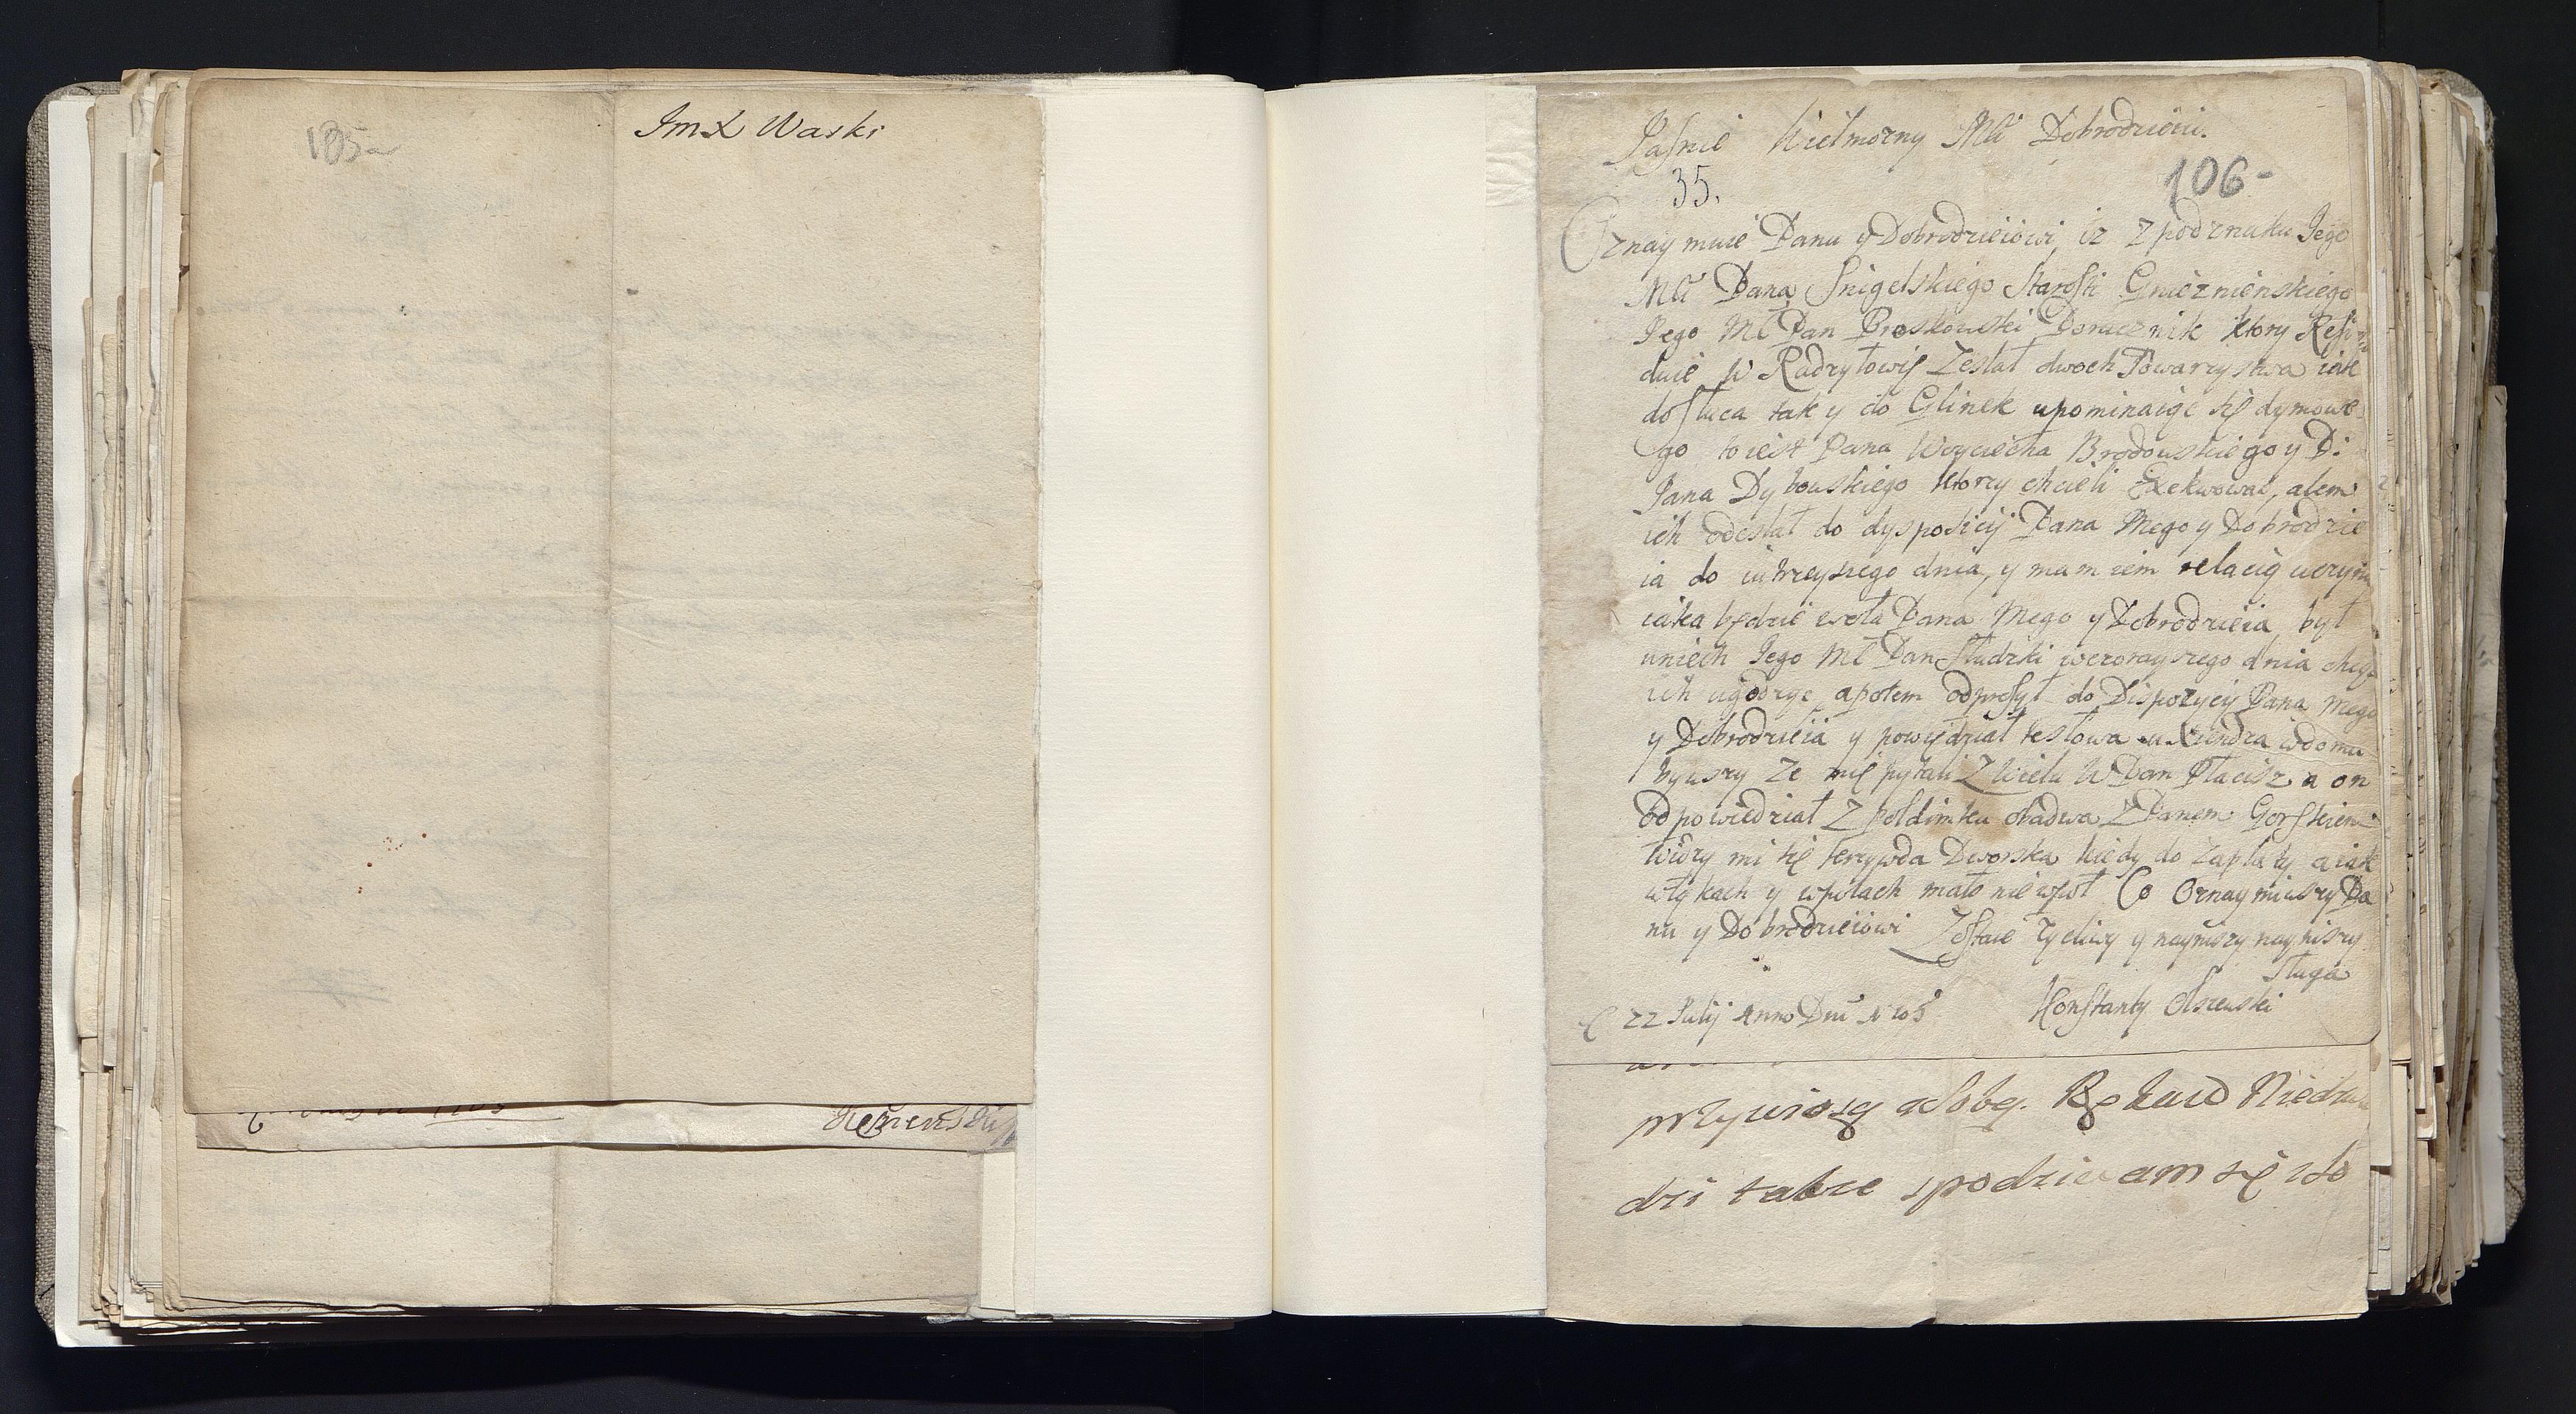 185
ImX Waski
1705
Jasnie Wielmozny Mći Dobrodzieiu.
35.
106-
Oznaymuie Panu y Dobrodzieiowi, iz z pod znaku Jego
Mći Pana Smigelskiego Starosti Gnieznienskiego
Jego Mć Pan Proskowski Porucznik ktory Resi
duie w Radzyłowie Zesłał dwoch Towarzystwa iak
do słuca tak y do Glinek upominaiąc się dymowe
go to iest Pana Woyciecha Brodowskiego y P:
Jana Dybowskiego ktorzy chcieli Exekwowac, alem
ich odesłał do dyspozicij Pana Mego y Dobrodzie
ia do iutrzeyszego dnia, y mam iem relacią uczyni
iaka będzie wola Pana Mego y Dobrodzieia, był
unich Jego Mć Pan Słudzki wczorayszego dnia chcąc
ich ugodzyc, apotem odpusył do Dispozycij Pana Mego
y Dobrodzieia y powiedział te słowa u Xiendza wdomu
bywszy Ze mię pytali Z wielu W Pan Płacisz a on
odpowiedział Z poldimku obadwa Z Panem Gorskiem
widzy mi się krzywda Dworska kiedy do Zapłaty a iak
włąkach y wpolach mało nie wpoł Co Oznaymiwszy Pa
nu y Dobrodzieiowi Zostaie zycliwy y naynizszy
sługa
22 Julij Anno Dni 1705
Konstanty Olszewski
przywiozą z Sobą.
dzi takze spodziewam się ze